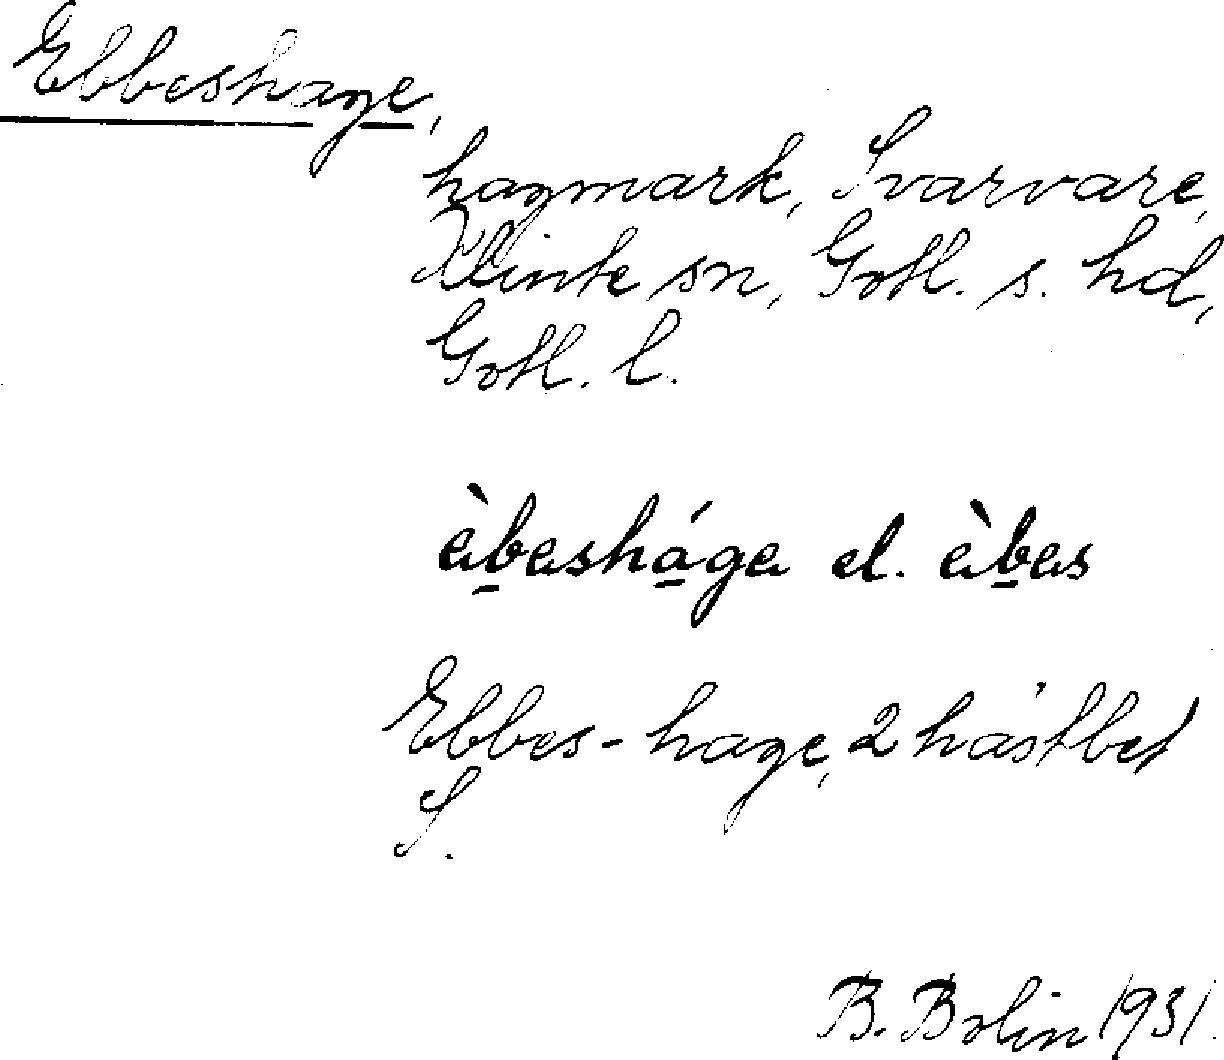 Ebbeshage,
hagmark, Svarvare,
Klinte sn, Gotl. s. hd,
Gotl. l.
àb̲eshá̲ge el. àb̲es
Ebbes-hage, 2 hästbet
S.
B. Bolin 1931.